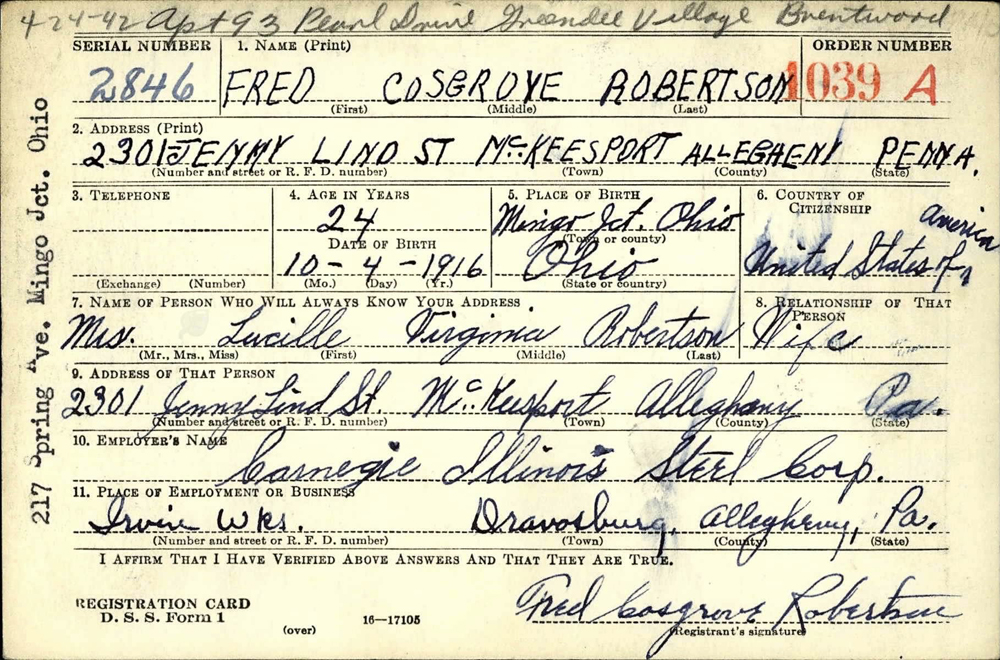 4-24-42 Apt 93 Pearl Drive Greendee Village Brentwood
SERIAL NUMBER 1. NAME (Print) ORDER NUMBER
2846 FRED COSGROVE ROBERTSON 1039 A
(First) (Middle) (Last)
2. ADDRESS (Print)
2301 JENNY LIND ST McKEESPORT ALLEGHENY PENNA.
(Number and street or R. F. D. number) (Town) (County) (State)
3. TELEPHONE 4. AGE IN YEARS 5. PLACE OF BIRTH 6. COUNTRY OF CITIZENSHIP
24 Mingo Jct. Ohio America
DATE OF BIRTH (Town or county)
10-4-1916 Ohio United States of
(Exchange) (Number) (Mo.) (Day) (Yr.) (State or country)
7. NAME OF PERSON WHO WILL ALWAYS KNOW YOUR ADDRESS 8. RELATIONSHIP OF THAT PERSON
Mrs. Lucille Virginia Robertson Wife
(Mr., Mrs., Miss) (First) (Middle) (Last)
9. ADDRESS OF THAT PERSON
2301 Jenny Lind St. McKeesport Alleghany Pa.
(Number and street or R. F. D. number) (Town) (County) (State)
10. EMPLOYER'S NAME
Carnegie Illinois Steel Corp.
11. PLACE OF EMPLOYMENT OR BUSINESS
Irvin Wks. Dravosburg, Allegheny, Pa.
(Number and street or R. F. D. number) (Town) (County) (State)
I AFFIRM THAT I HAVE VERIFIED ABOVE ANSWERS AND THAT THEY ARE TRUE.
Fred Cosgrove Robertson
REGISTRATION CARD
D. S. S. Form 1 (over) 16—17105 (Registrant's signature)
217 Spring Ave. Mingo Jct. Ohio